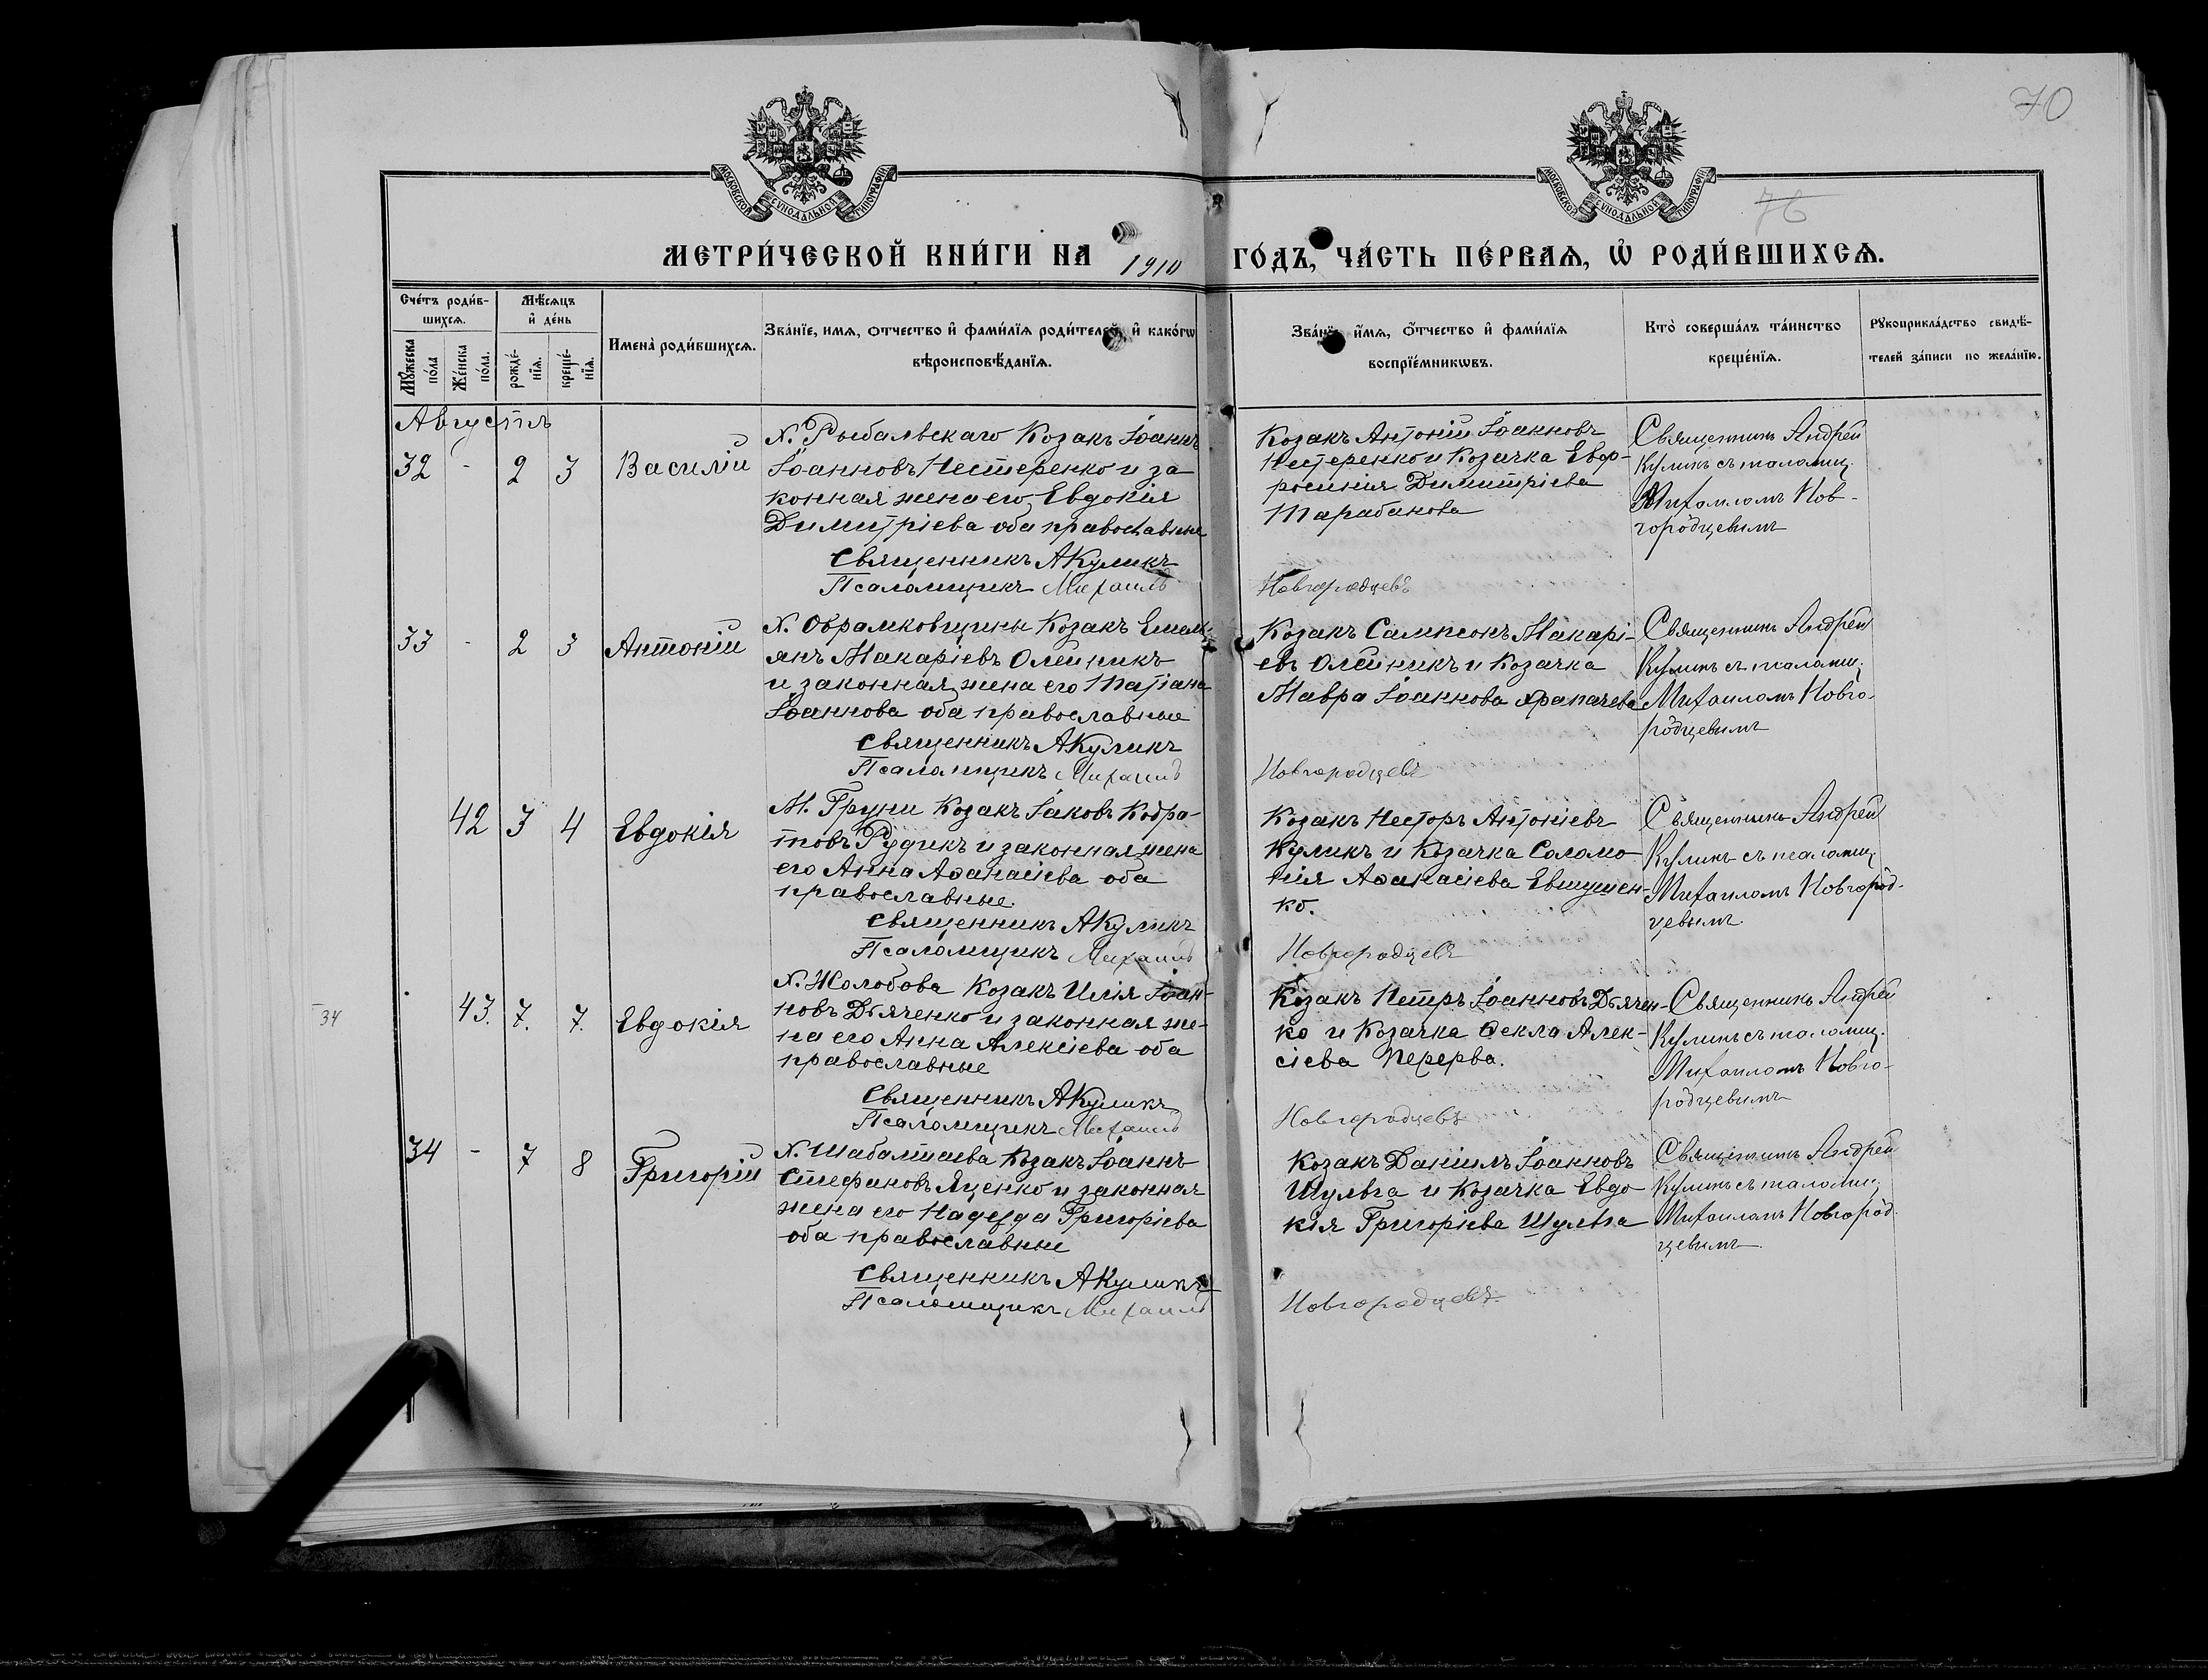 70
МОСКОВСКОЙ СѴНОДАЛЬНОЙ ТИПОГРАФІИ
МОСКОВСКОЙ СѴНОДАЛЬНОЙ ТИПОГРАФІИ
76
МЕТРИ́ЧЕСКОЙ КНИ́ГИ НА 1910 ГО́ДЪ, ЧА́СТЬ ПЕ́РВАѦ, Ѡ҆ РОДИ́ВШИХСѦ.
Сче́тъ роди́в-
шихсѧ.
Мѣ́сѧцъ
и҆ де́нь
Мꙋ́жеска
по́ла
Же́нска
по́ла.
рожде́-
нїѧ.
креще́-
нїѧ.
Имена̀ роди́вшихсѧ.
Зва́нїе, имѧ, ѻтчество и҆ фами́лїѧ роди́телей, и҆ како́гѡ
вѣроисповѣ́данїѧ.
Зва́нїе, и҆мѧ, ѻ҆тчество и҆ фами́лїѧ
воспрїе́мникѡвъ.
Кто̀ соверша́лъ та́инство
креще́нїѧ.
Рꙋкоприкла́дство свидѣ́-
телей за́писи по жела́нїю.
Августъ
32 - 2 3 Василій
Х. Рыбальскаго Козакъ Іоаннъ
Іоанновъ Нестеренко и за
конная жена его Евдокія
Димитріева оба православные
Священникъ А Куликъ
Псаломщикъ Михаилъ Новгородцевъ
Козакъ Антоній Іоанновъ
Нестеренко и Козачка Евф-
росинія Димитріева
Тарабанова
Священникъ Андрей
Куликъ съ псаломщ.
Михаиломъ Нов-
городцевымъ
33 - 2 3 Антоній
Х. Обрамковщины Козакъ Емель
янъ Макаріевъ Олейникъ
и законная жена его Татіана
Іоаннова оба православные
Священникъ А Куликъ
Псаломщикъ Михаилъ Новгородцевъ
Козакъ Сампсонъ Макарі-
евъ Олейникъ и Козачка
Мавра Іоаннова
Священникъ Андрей
Куликъ съ псаломщ.
Михаиломъ Новго-
родцевымъ
42 3 4 Евдокія
М. Груни Козакъ Іаковъ Кодра-
товъ Рудикъ и законная жена
его Анна Аѳанасіева оба
православные.
Священникъ А Куликъ
Псаломщикъ Михаилъ Новгородцевъ
Козакъ Несторъ Антоніевъ
Куликъ и Козачка Соломо
нія Аѳанасіева Евтушен-
ко.
Священникъ Андрей
Куликъ съ псаломщ.
Михаиломъ Новгород-
цевымъ
34
43. 7. 7. Евдокія
Х. Жолобова Козакъ Илія Іоан-
новъ Дьяченко и законная же-
на его Анна Алексіева оба
православные
Священникъ А Куликъ
Псаломщикъ Михаилъ Новгородцевъ
Козакъ Петръ Іоанновъ Дьячен-
ко и Козачка Ѳекла Алек-
сіева Перерва.
Священникъ Андрей
Куликъ съ псаломщ.
Михаиломъ Новго-
родцевымъ
34 - 7 8 Григорій
Х. Шабалтаева Козакъ Іоаннъ
Стефановъ Яценко и законная
жена его Надежда Григоріева
оба православные
Священникъ А Куликъ
Псаломщикъ Михаилъ Новгородцевъ.
Козакъ Даніилъ Іоанновъ
Шульга и Козачка Евдо
кія Григоріева Шульга
Священникъ Андрей
Куликъ съ псаломщ.
Михаиломъ Новгород-
цевымъ